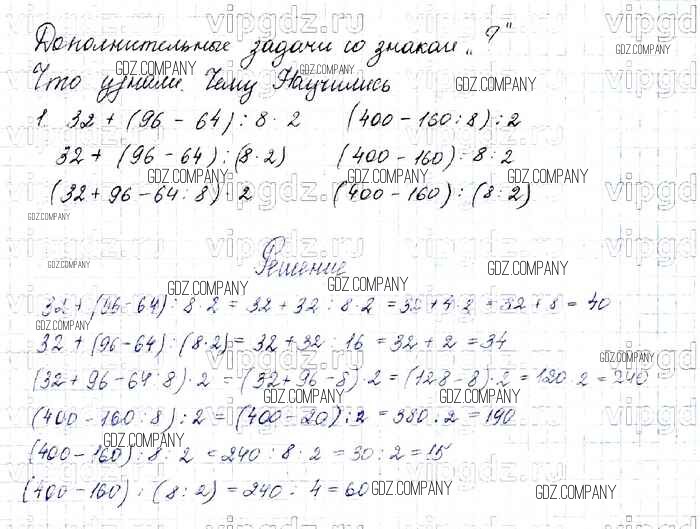 Дополнительные задачи со знаком „?"
Что узнали. Чему Научились
1. 32 + (96 - 64) : 8 · 2 (400 - 160 : 8) : 2
32 + (96 - 64) : (8 · 2) (400 - 160) : 8 · 2
(32 + 96 - 64 : 8) · 2 (400 - 160) : (8 : 2)
Решение
32 + (96 - 64) : 8 · 2 = 32 + 32 : 8 · 2 = 32 + 4 · 2 = 32 + 8 = 40
32 + (96 - 64) : (8 · 2) = 32 + 32 : 16 = 32 + 2 = 34
(32 + 96 - 64 : 8) · 2 = (32 + 96 - 8) · 2 = (128 - 8) · 2 = 120 · 2 = 240
(400 - 160 : 8) : 2 = (400 - 20) : 2 = 380 : 2 = 190
(400 - 160) : 8 : 2 = 240 : 8 · 2 = 30 : 2 = 15
(400 - 160) : (8 : 2) = 240 : 4 = 60
vipgdz.ru
GDZ.COMPANY